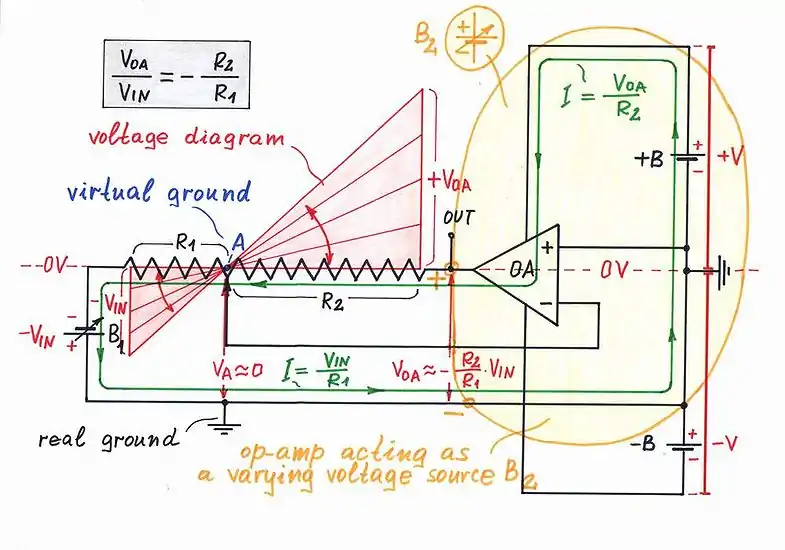 B2
+
VOA
VIN
= -
R2
R1
I =
VOA
R2
voltage diagram
+
-
+B
+V
+VOA
virtual ground
OUT
R1
A
+
--0V
OA
0V
+
R2
-
-VIN
-
-VIN
+
B1
VA≈0
I =
VIN
R1
VOA≈-
R2
R1
·VIN
-
real ground
-B
+
-
-V
op-amp acting as
a varying voltage source B2